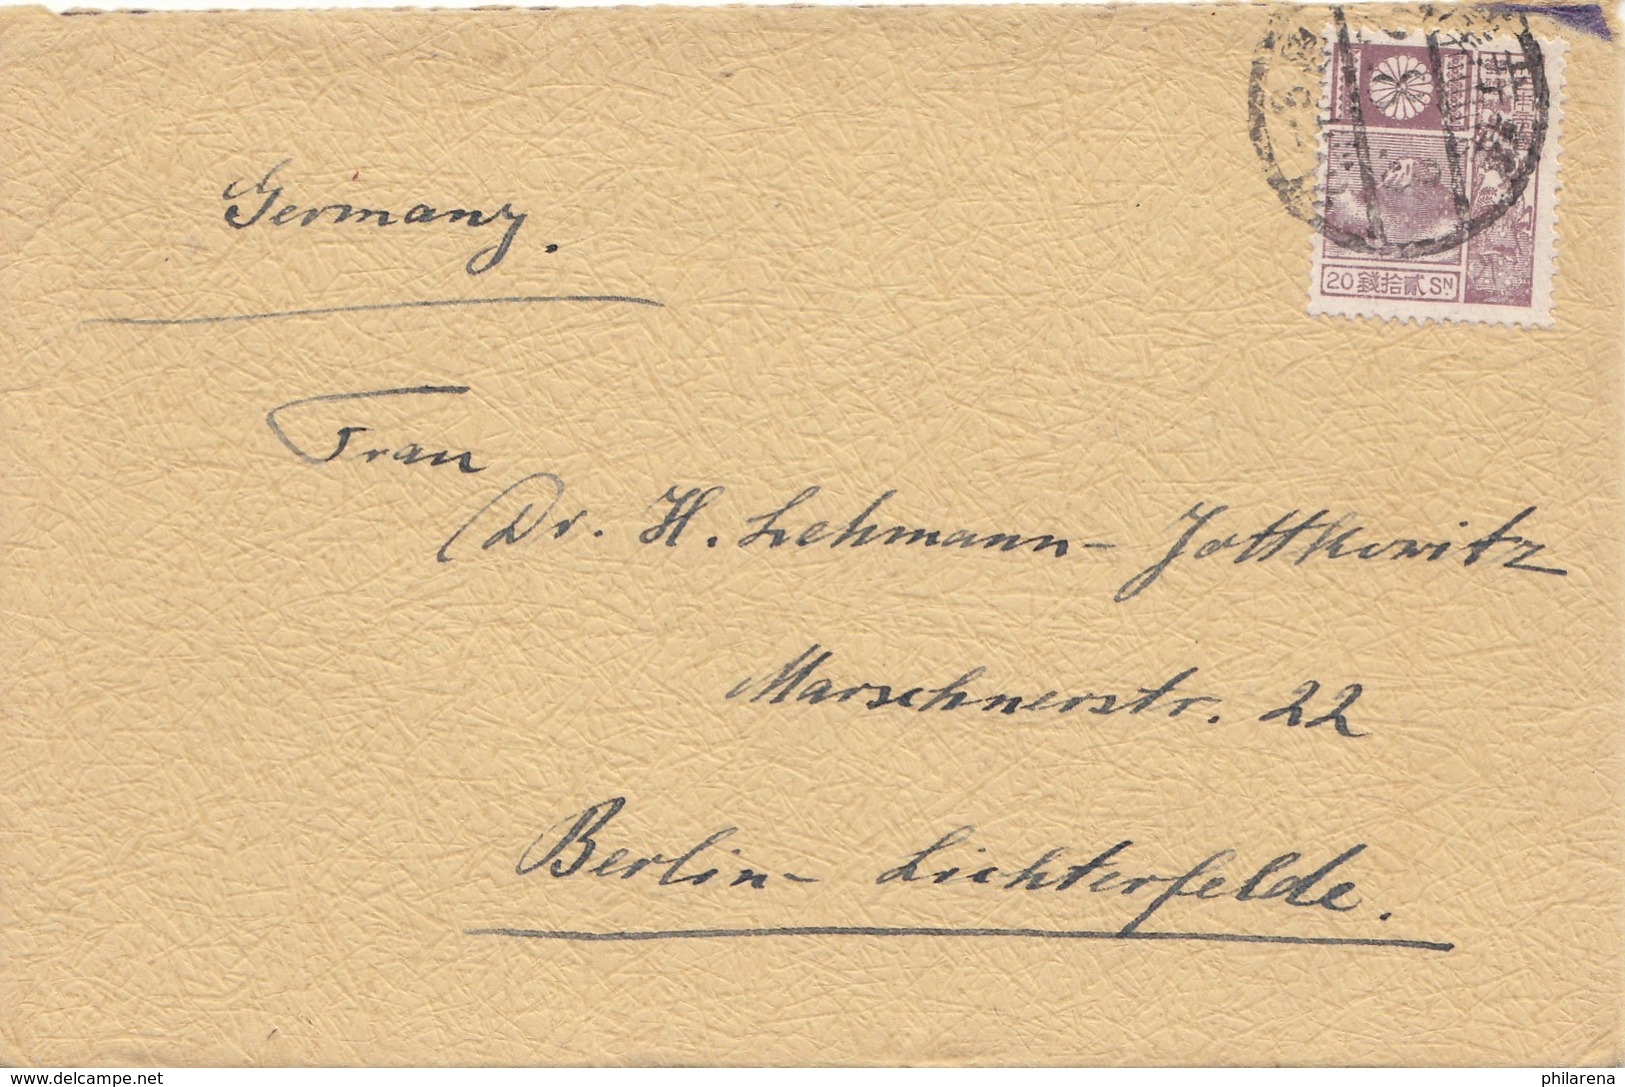 Germany.
20 錢拾貳 SN
Frau
Dr. H. Lehmann-Jottkowitz
Marschnerstr. 22
Berlin-Lichterfelde.
www.delcampe.net
philarena